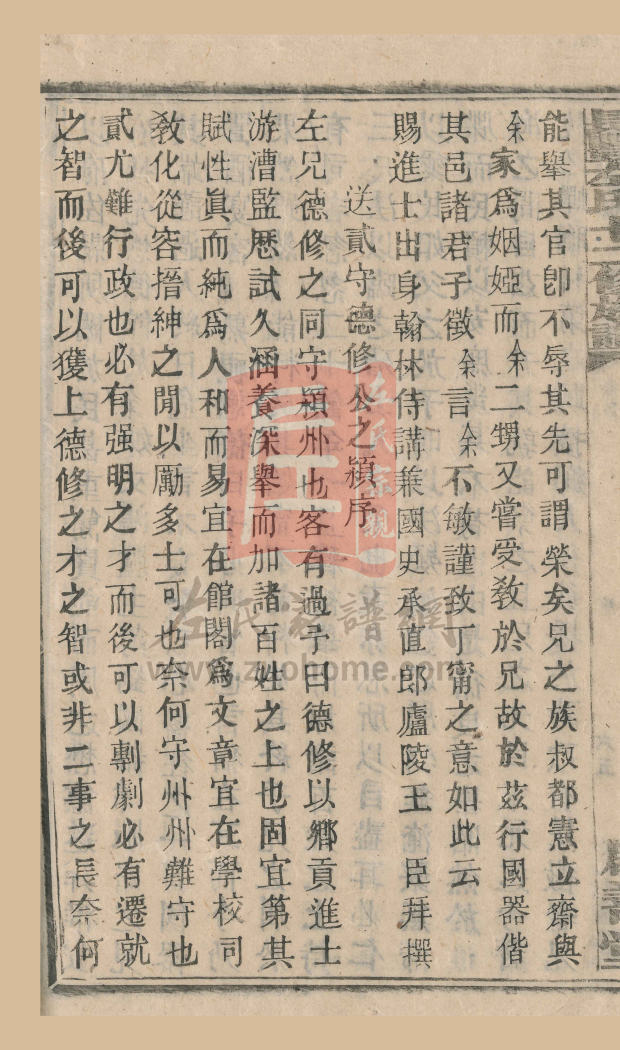 能舉其官卽不辱其先可謂榮矣兄之族叔都憲立齋與
余家爲姻婭而余二甥又嘗受敎於兄故於茲行國器偕
其邑諸君子徵余言余不敏謹致丁甯之意如此云
賜進士出身翰林侍講兼國史承直郎廬陵王臣拜撰
送貳守德修公之潁序
左兄德修之同守潁州也客有過予曰德修以鄉貢進士
游漕監歷試久涵養深舉而加諸百姓之上也固宜第其
賦性眞而純爲人和而易宜在館閣爲文章宜在學校司
敎化從容搢紳之閒以勵多士可也奈何守州州難守也
貳尤難行政也必有强明之才而後可以剸劇必有遷就
之智而後可以獲上德修之才之智或非二事之長奈何
左氏宗親
左氏家譜網
www.zuohome.com